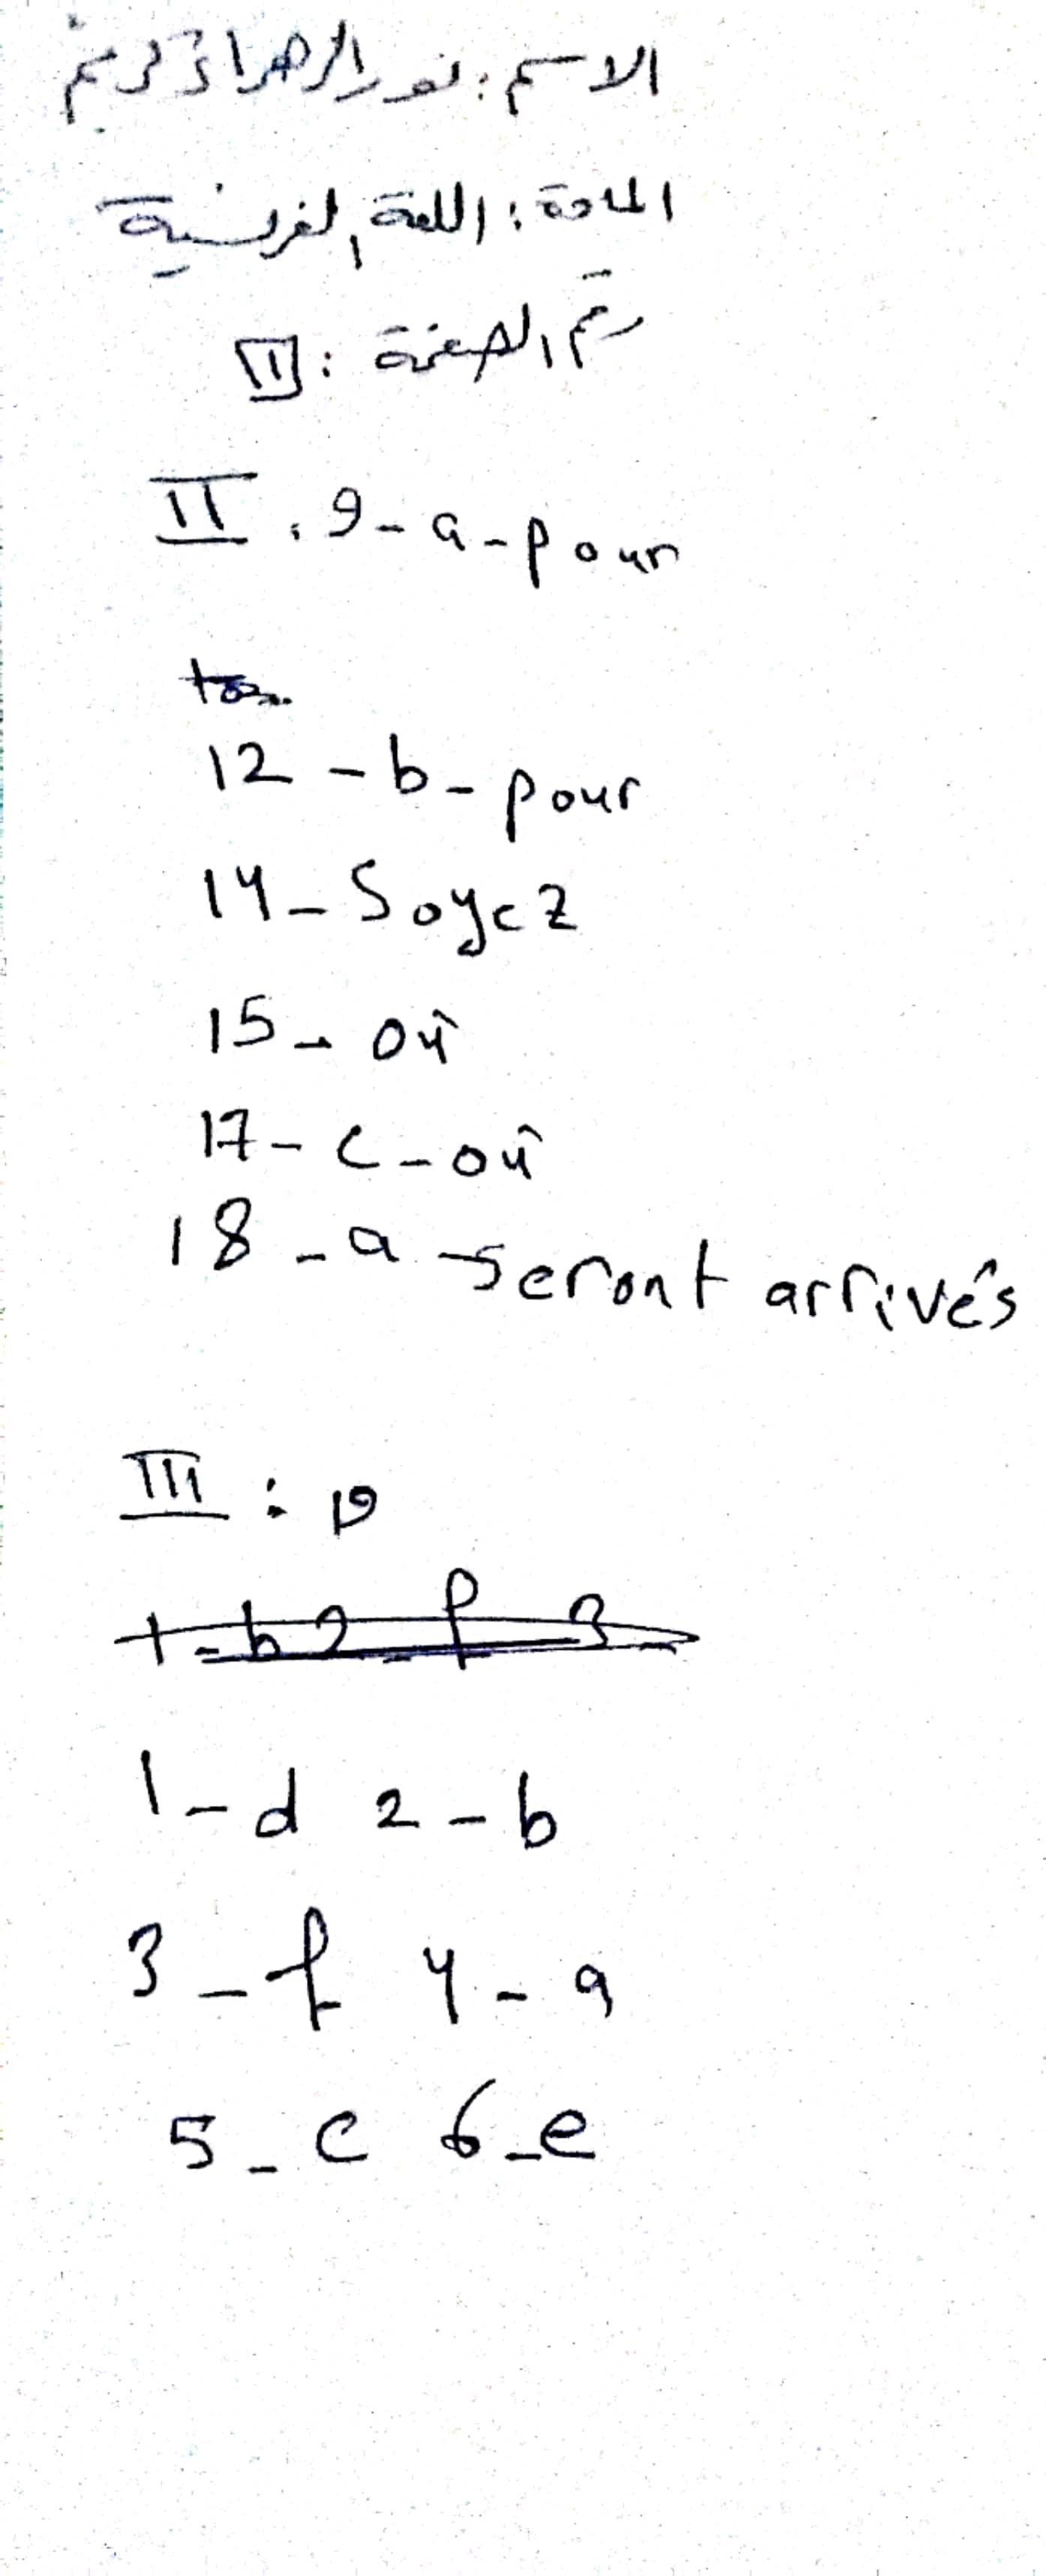 الاسم : نور الزهراء كريم
المادة : اللغة الفرنسية
رقم الصفحة :
II . 9 - a - pour
12 - b - pour
14 - Soyez
15 - où
17 - c - où
18 - a - seront arrivés
III : 19
1 - b 2 - f 3 -
1 - d 2 - b
3 - f 4 - a
5 - c 6 - e